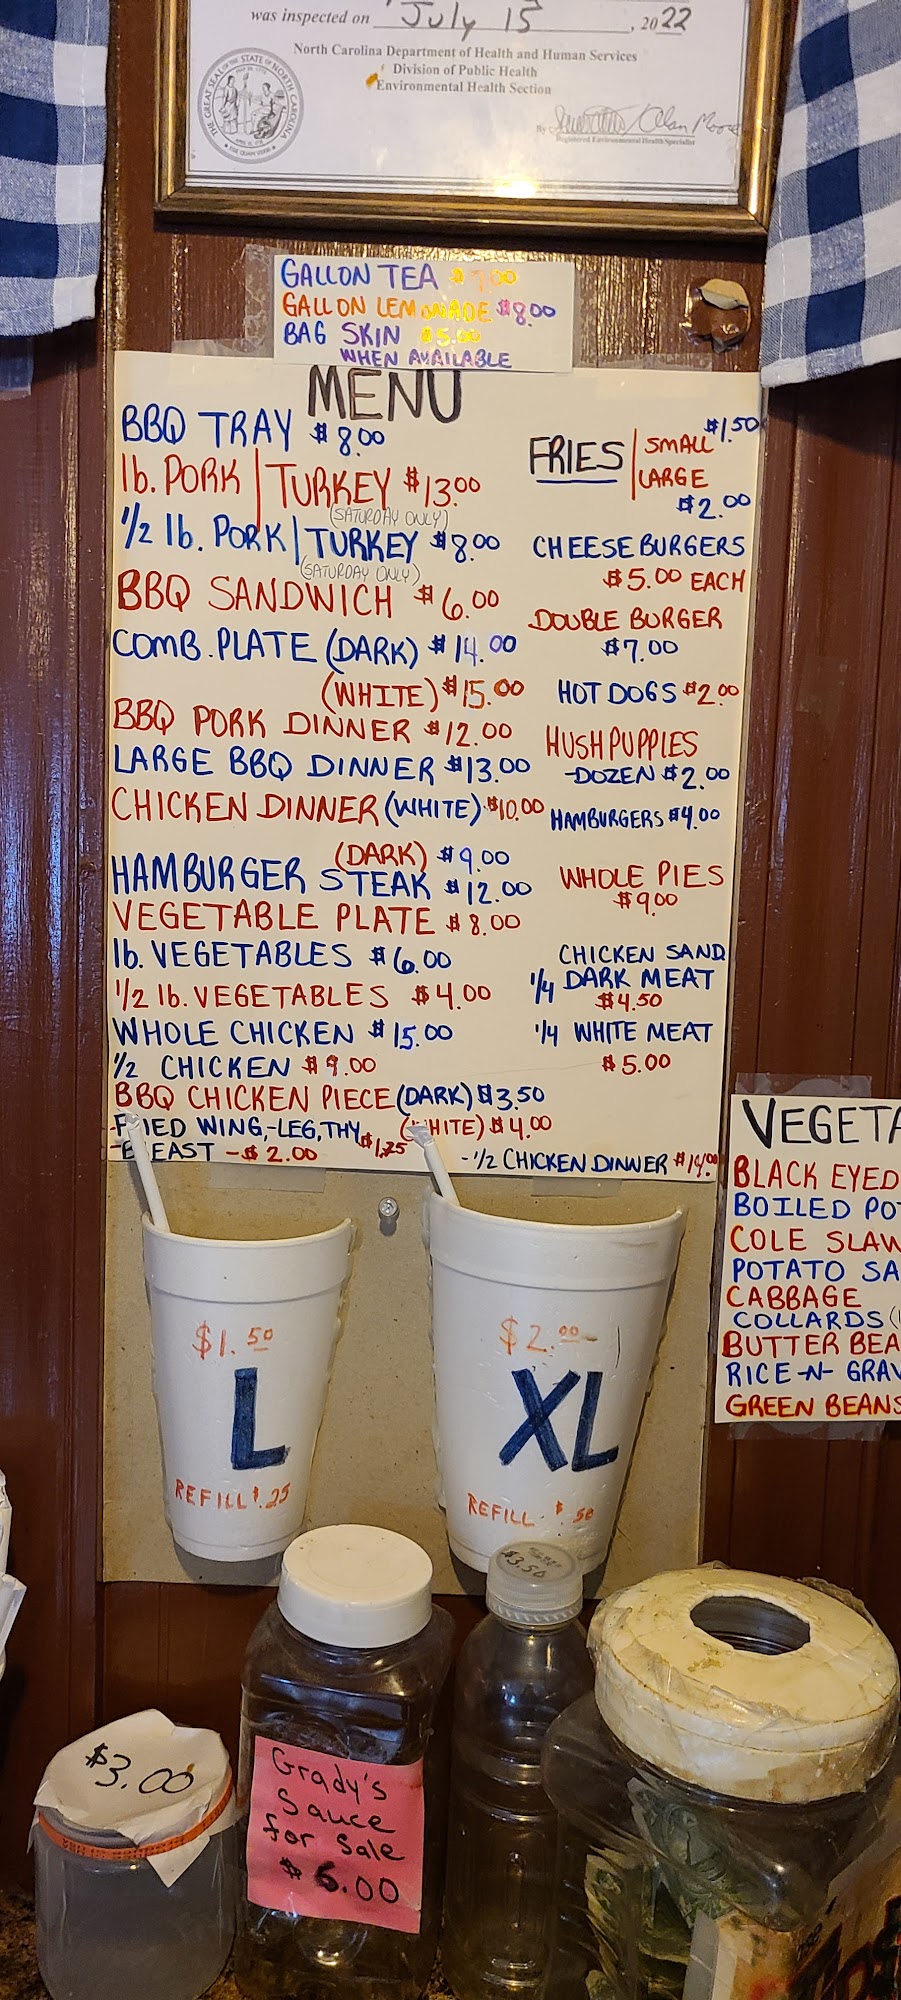 was inspected on July 15, 2022
North Carolina Department of Health and Human Services
Division of Public Health
Environmental Health Section
THE GREAT SEAL OF THE STATE OF NORTH CAROLINA
By
Registered Environmental Health Specialist
GALLON TEA $7.00
GALLON LEMONADE $8.00
BAG SKIN $5.00
WHEN AVAILABLE
MENU
BBQ TRAY $8.00
lb. PORK | TURKEY $13.00
(SATURDAY ONLY)
1/2 lb. PORK | TURKEY $8.00
(SATURDAY ONLY)
BBQ SANDWICH $6.00
COMB. PLATE (DARK) $14.00
(WHITE) $15.00
BBQ PORK DINNER $12.00
LARGE BBQ DINNER $13.00
CHICKEN DINNER (WHITE) $10.00
(DARK) $9.00
HAMBURGER STEAK $12.00
VEGETABLE PLATE $8.00
lb. VEGETABLES $6.00
1/2 lb. VEGETABLES $4.00
WHOLE CHICKEN $15.00
1/2 CHICKEN $9.00
BBQ CHICKEN PIECE (DARK) $3.50
(WHITE) $4.00
-FRIED WING,-LEG,THY $1.25
-BREAST -$2.00
-1/2 CHICKEN DINNER $14.00
FRIES | SMALL $1.50
LARGE
$2.00
CHEESEBURGERS
$5.00 EACH
DOUBLE BURGER
$7.00
HOT DOGS $2.00
HUSHPUPPIES
-DOZEN $2.00
HAMBURGERS $4.00
WHOLE PIES
$9.00
CHICKEN SAND.
1/4 DARK MEAT
$4.50
1/4 WHITE MEAT
$5.00
VEGETA
BLACK EYED
BOILED PO
COLE SLAW
POTATO SA
CABBAGE
COLLARDS (
BUTTER BEA
RICE-N-GRAV
GREEN BEANS
$1.50
L
REFILL $.25
$2.00
XL
REFILL $.50
$3.50
$3.00
Grady's
Sauce
for Sale
$6.00